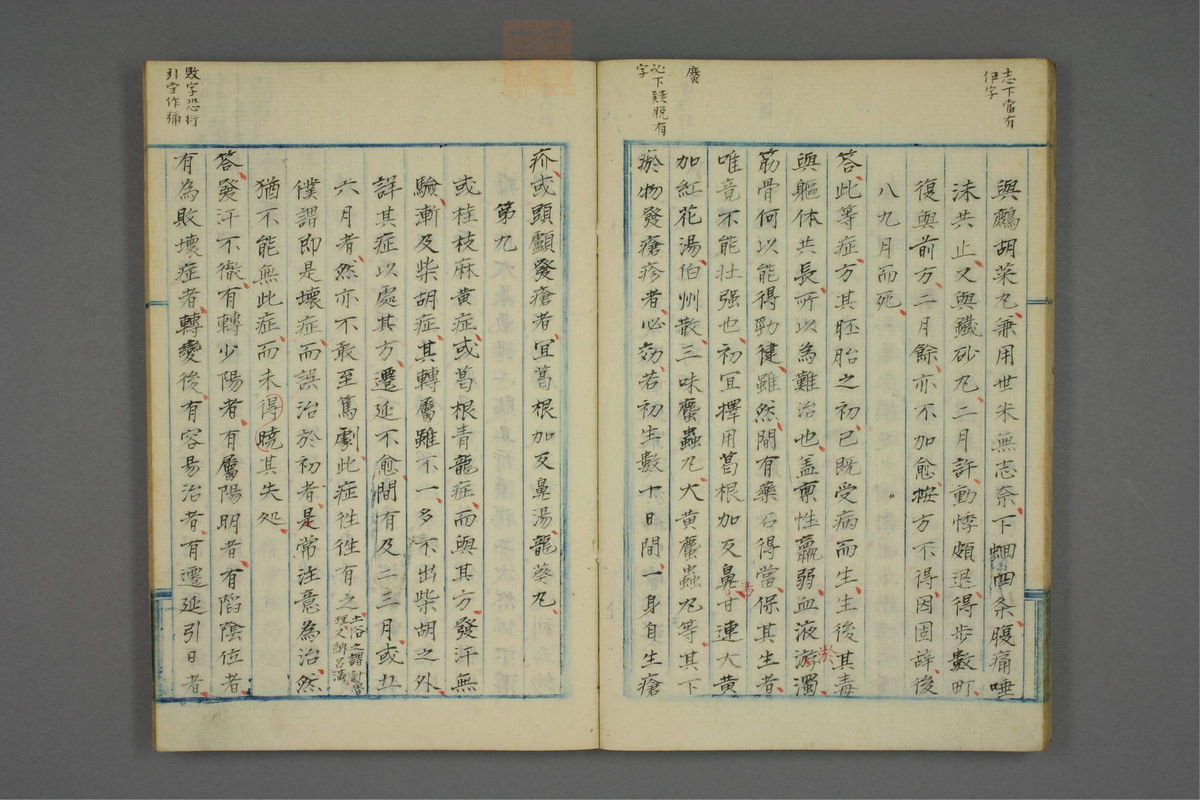 志下當有
伊字
與鷓胡菜丸、兼用世米無志奈、下蛔四条、腹痛唾
沫共止、又與礞砂丸、二月許、動悸頗退、得步數町、
復與前方、二月餘、亦不加愈、按方不得、因固辞後
八九月而死、
答、此等症、方其胚胎之初、已既受病而生、生後其毒
與軀体共長、所以為難治也、盖禀性羸弱、血液游濁、
淤
筋骨何以能得勁健、雖然、間有藥石得當、保其生者、
唯竟不能壯强也、初宜擇用葛根加反鼻甘連大黃
湯
加紅花湯、伯州散、三味䗪蟲丸、大黃䗪蟲丸等、其下
䗪
瘀物發瘡疹者、必効、若初生數十日間、一身自生瘡
必下疑脱有
字
疥、或頭顱發瘡者、宜葛根加反鼻湯、龍葵丸、
第九
或桂枝麻黃症、或葛根青龍症、而與其方、發汗無
驗、漸及柴胡症、其轉屬雖不一、多不出柴胡之外、
詳其症以處其方、遷延不愈、間有及二三月、或五
六月者、然亦不敢至篤劇、此症徃徃有之
土俗之謂討當
僕謂即是壞症、而誤治於初者、是常注意為治、然
猶不能無此症、而未得曉其失処
答、發汗不徹、有轉少陽者、有屬陽明者、有陷陰位者
有為敗壞症者、轉變後、有容昜治者、有遷延引日者、
敗字恐衍
引當作彌